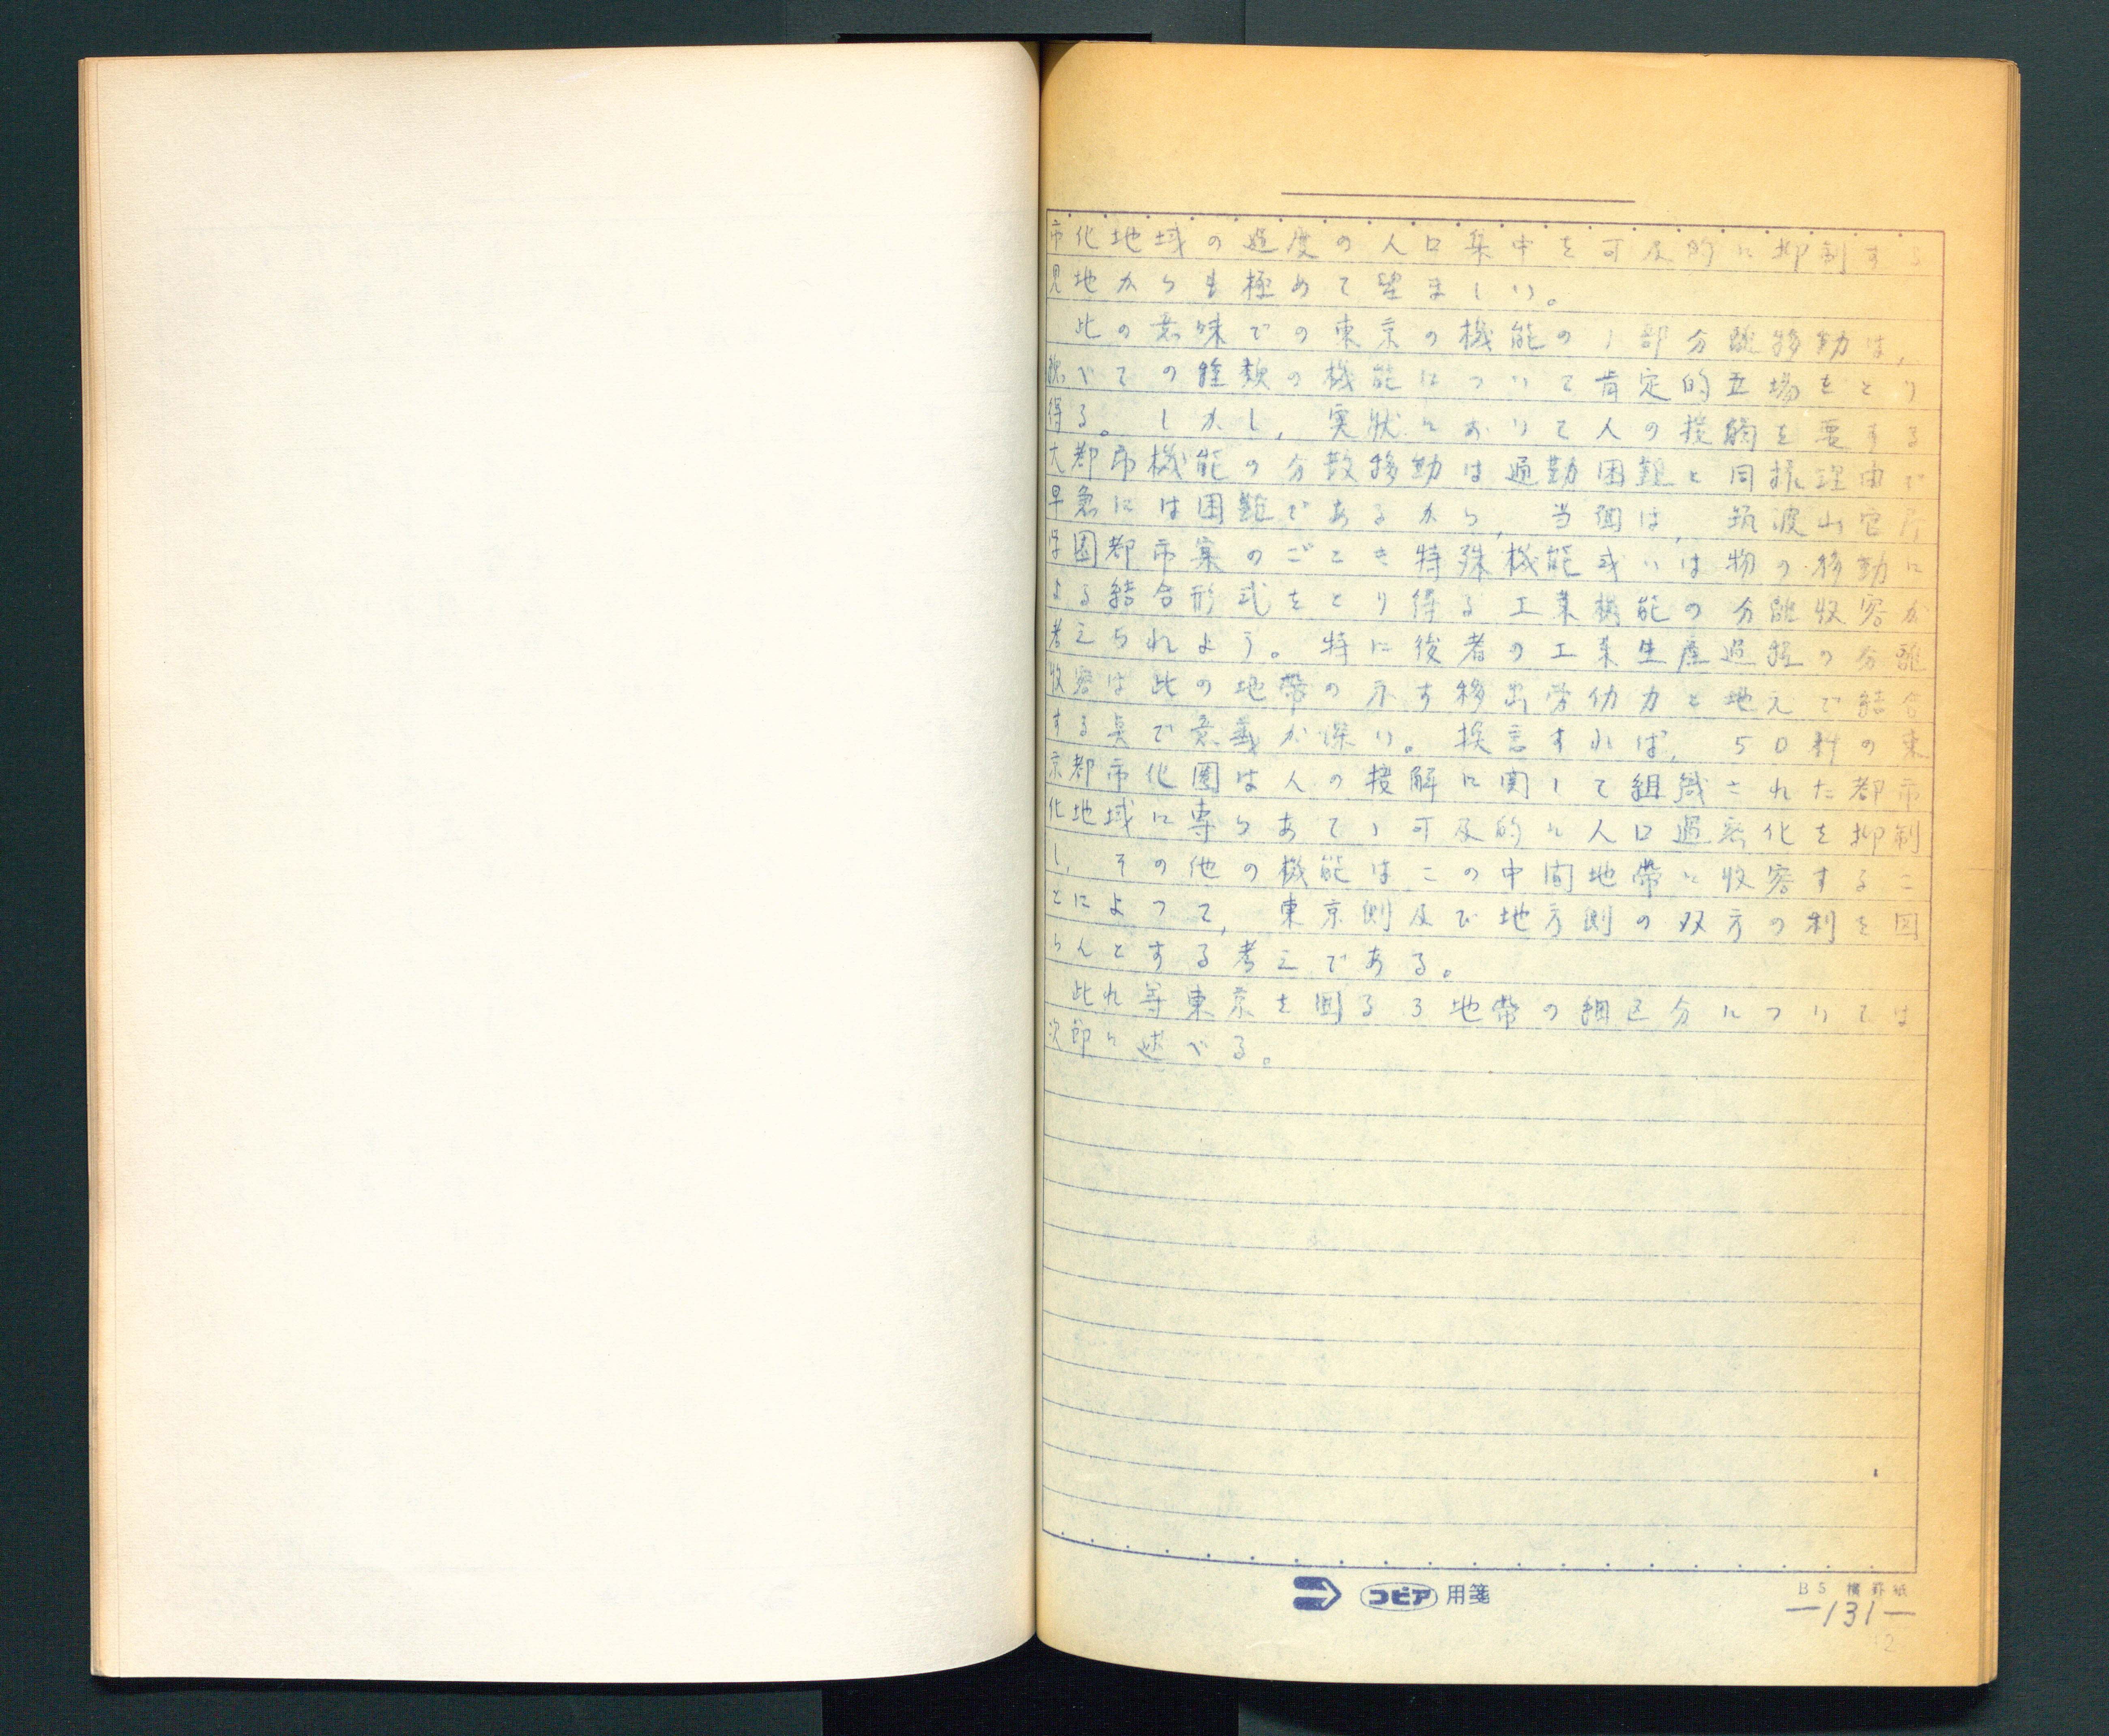 市化地域の過度の人口集中を可及的に抑制する
見地からも極めて望ましい。
此の意味での東京の機能の1部分離移動は,
総べての種類の機能について肯定的立場をとり
得る。しかし,実状において人の接觸を要する
大都市機能の分散移動は通勤困難と同様理由で
早急には困難であるから,当個は,筑波山官庁
学園都市案のごとき特殊機能或いは物の移動に
よる結合形式をとり得る工業機能の分離収容が
考えられよう。特に後者の工業生産過程の分離
収容は此の地帶の示す移出労仂力と地元で結合
する点で意義が深い。換言すれば,50粁の東
京都市化圏は人の接解に関して組織された都市
化地域に專らあてゝ可及的に人口過密化を抑制
し,その他の機能はこの中間地帶に收容するこ
とによって,東京側及び地方側の双方の利を図
らんとする考えである。
此れ等東京を圍る3地帶の細区分については
次節に述べる。
コピア 用箋
B5 横罫紙
―131―